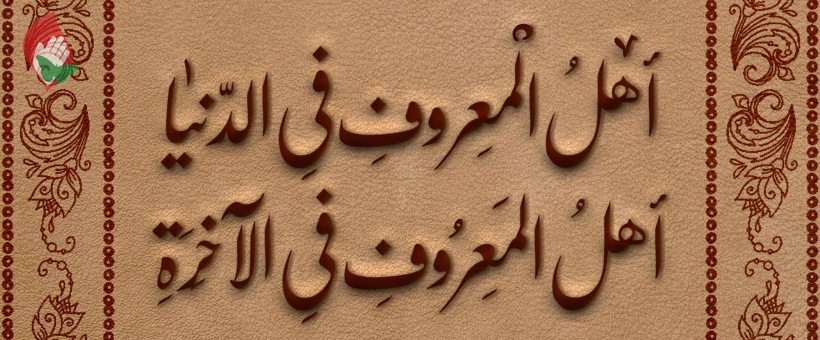 أهلُ الْمعِروفِ فيِ الدّنياٰ
أهلُ المَعِرُوفِ فيِ الآخرَةِ